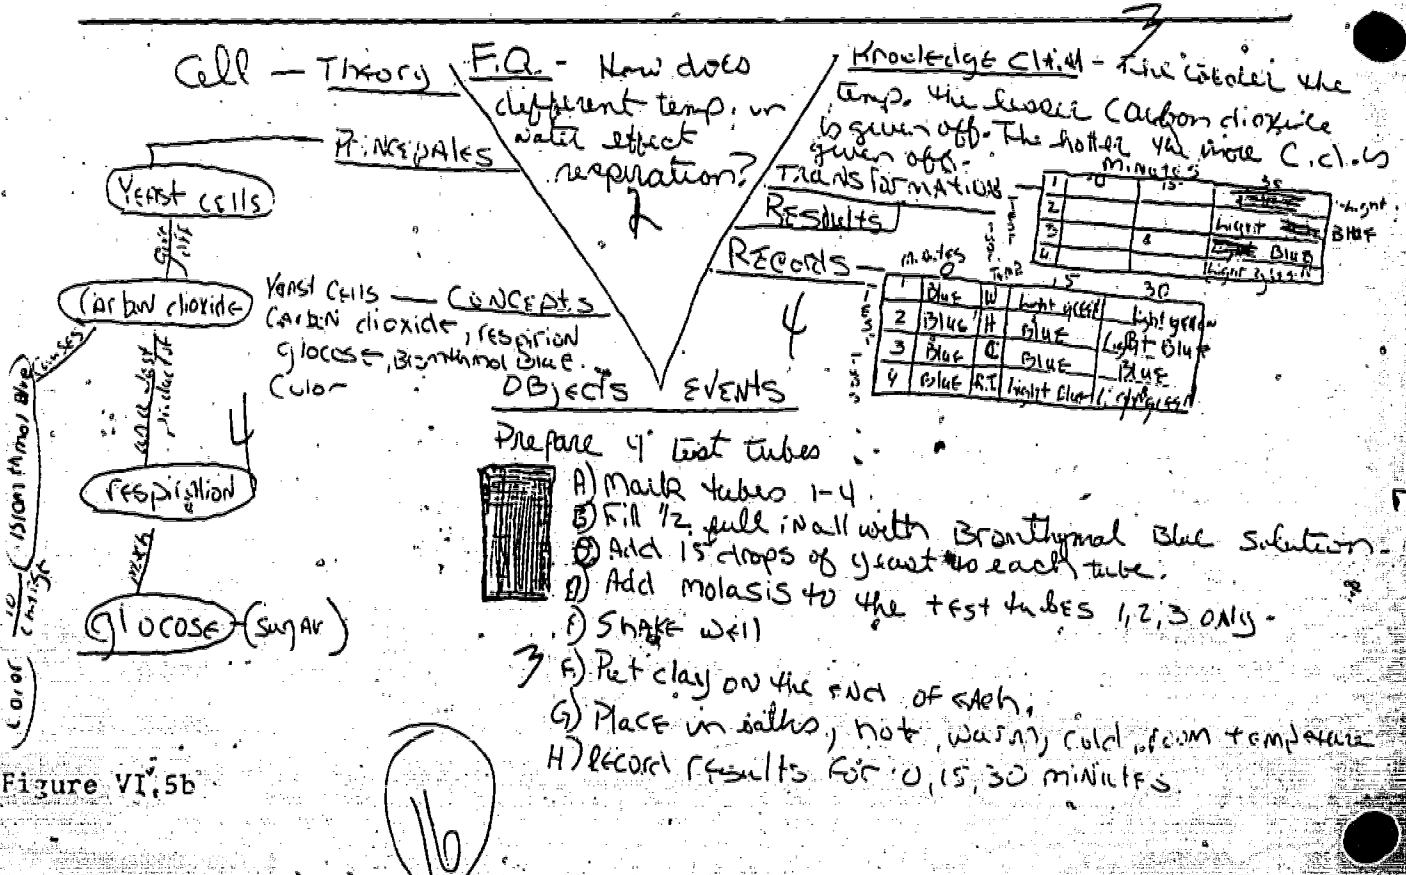 3
Cell - Theory
F.Q. - How does
different temp. or
water effect
respiration?
2
Knowledge Claim - the the
temp. the lesser Carbon dioxide
is given off. The hotter the more C.d. is
given off.
Principales
Yeast cells
give
off
Carbon dioxide
causes
Bromthmol Blue
to
change
color
respiration
glocose (sugar)
4
Yeast Cells - Concepts
Carbon dioxide, respirion
glocose, Bromthmol Blue
Color
Transformations
Minutes
1 0 15 30
2 Light
3 Blue
4 Blue
Results
Records
4
Minutes
0 Temp 15 30
1 Blue W Light green light green
2 Blue H Blue Light Blue
3 Blue C Blue Blue
4 Blue R.T light Blue
Objects Events
Prepare 4 test tubes
A) Mark tubes 1-4.
B) Fill 1/2 full in all with Bromthymal Blue solution.
C) Add 15 drops of yeast to each tube.
D) Add molasis to the test tubes 1, 2, 3 only.
E) Shake well
3
F) Put clay on the end of each.
G) Place in baths, hot, warm, cold, room temperature
H) Record results for 0, 15, 30 minutes.
Figure VI.5b
16